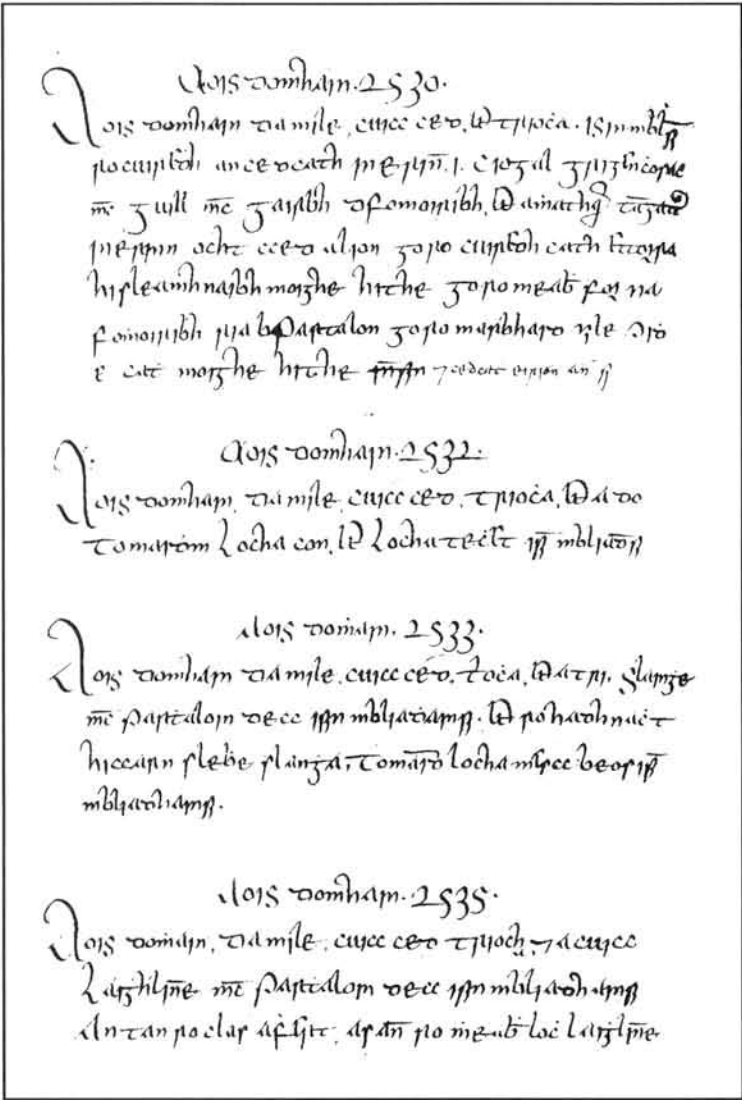 Aois domhain. 2530.
Aois domhain da mile, cuicc ced, ⁊ triocha. Isin mbl.
ro cuiredh an ced cath in Erinn .i. Ciogal
mc Guill mc Gairbh dfomoiribh, ⁊ a mathair
in Erinn ocht cced a lion go ro cuiredh cath
hi sleamhnaibh moighe hithe go ro meabh for na
fomoiribh ria bPartalon go ro marbhaid uile
cath moighe hithe
Aois domhain. 2532.
Aois domhain, da mile, cuicc ced, triocha, ⁊ a do
Tomaidm Locha con, ⁊ Locha techet isin mbliadain
Aois domhain. 2533.
Aois domhain da mile, cuicc ced, ⁊ a tri. Slainge
mc Partaloin decc isin mbliadainsi. ⁊ ro hadhnacht
hi ccarn slebe slanga, Tomaidm locha mescc beos isin
mbliadhainsi.
Aois domhain. 2535.
Aois domhain, da mile, cuicc ced triocha, ⁊ a cuicc
Laighlinne mc Partaloin decc isin mbliadhainsi
An tan ro clas a fert, as ann ro meabh loch Laighlinne